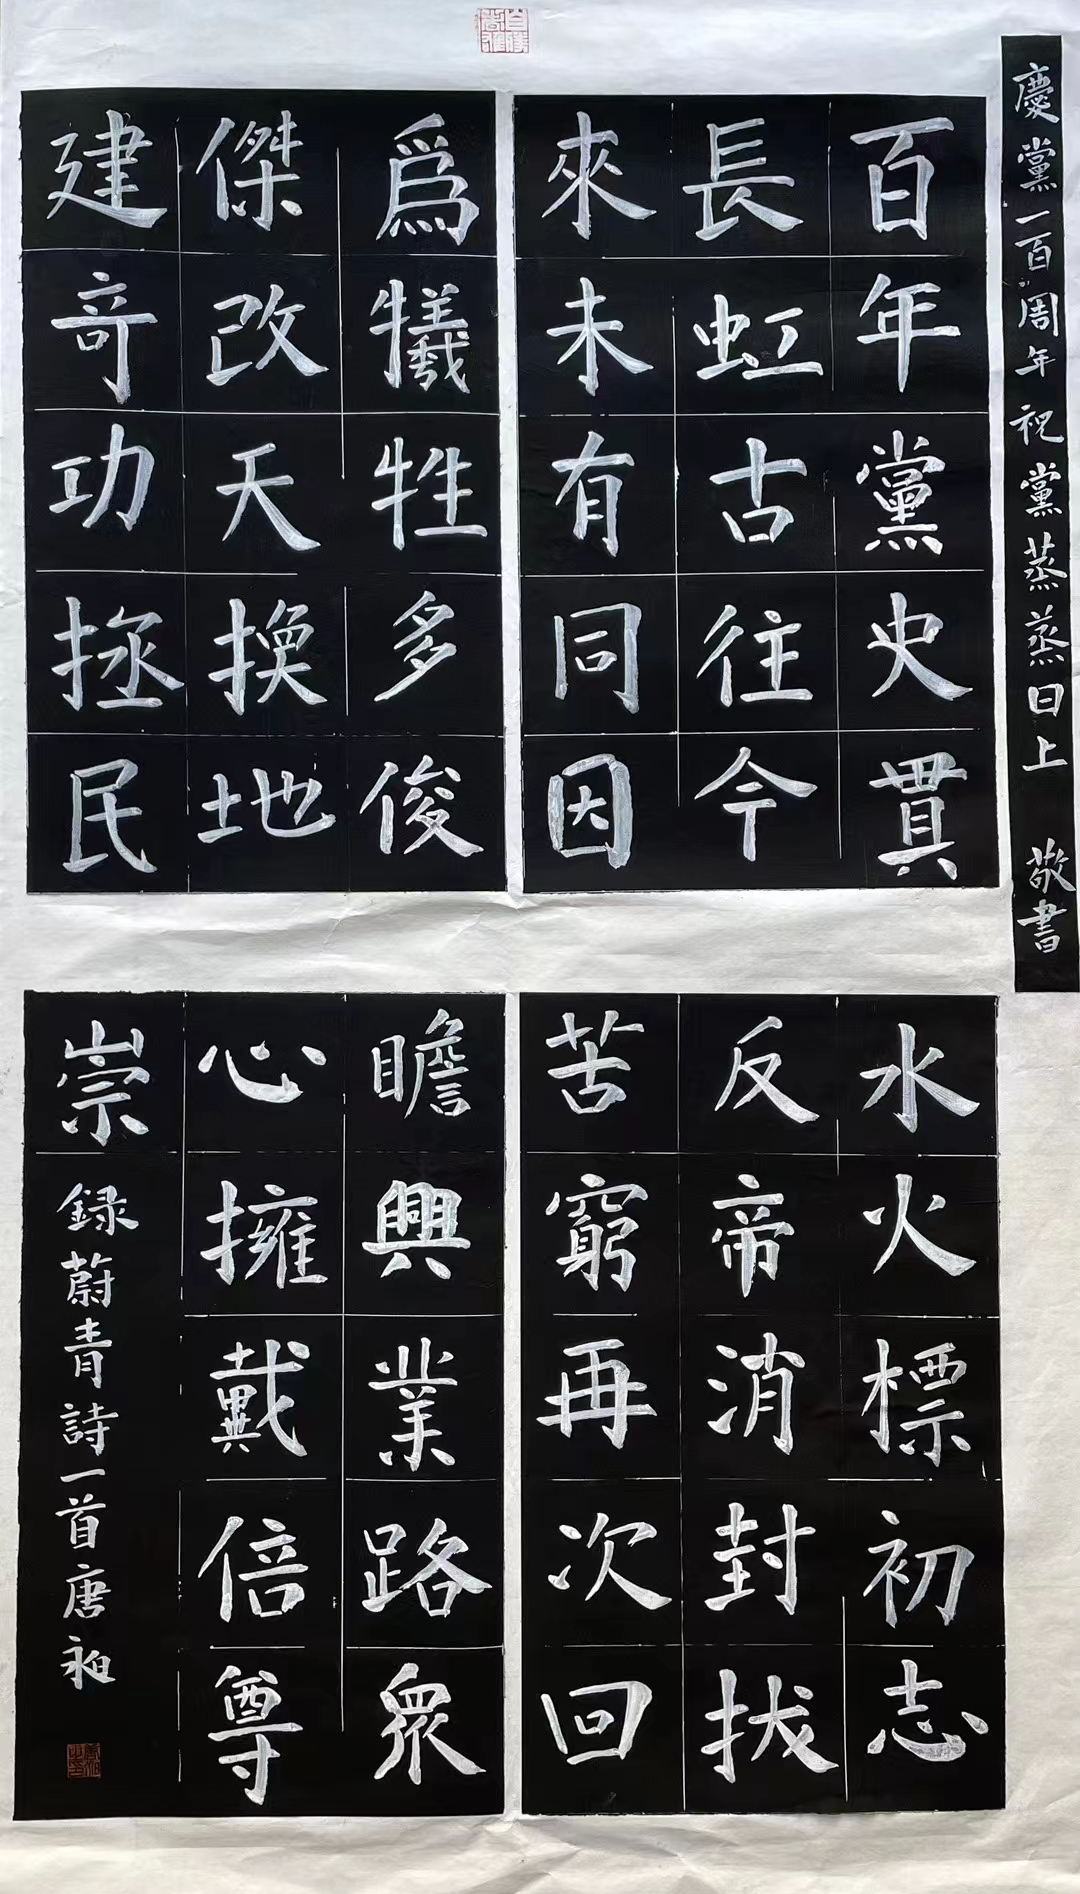 慶黨一百周年祝黨蒸蒸日上 敬書
百年黨史貫
長虹古往今
來未有同因
爲犧牲多俊
傑改天換地
建奇功拯民
水火標初志
反帝消封拔
苦窮再次回
瞻興業路衆
心擁戴倍尊
崇 録蔚青詩一首唐昶